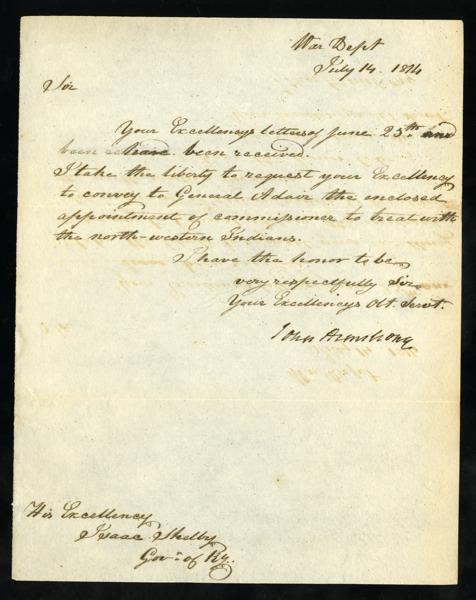 War Dept
July 14. 1814
Sir
Your Excellency's letters of June 25th and
been have been received.
I take the liberty to request your Excellency
to convey to General Adair the enclosed
appointment of commissioner to treat with
the north-western Indians.
I have the honor to be
very respectfully Sir
Your Excellencys Obt. Servt.
John Armstrong
His Excellency
Isaac Shelby
Govr. of Ky.